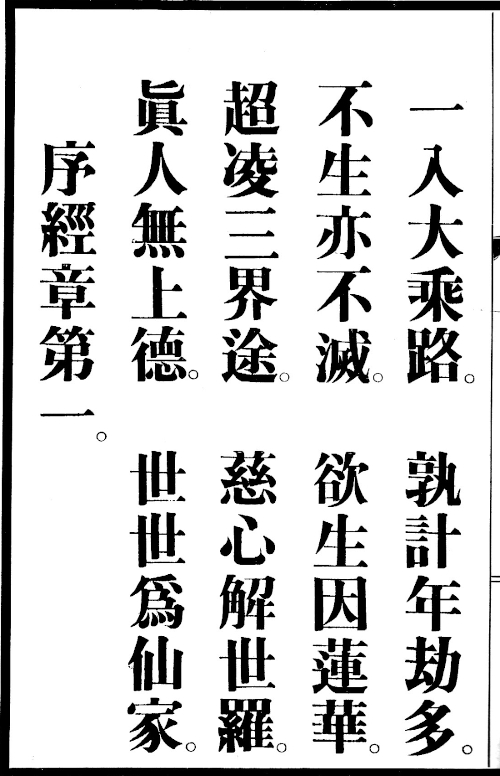 一入大乘路。 孰計年劫多。
不生亦不滅。 欲生因蓮華。
超凌三界途。 慈心解世羅。
眞人無上德。 世世爲仙家。
序經章第一。